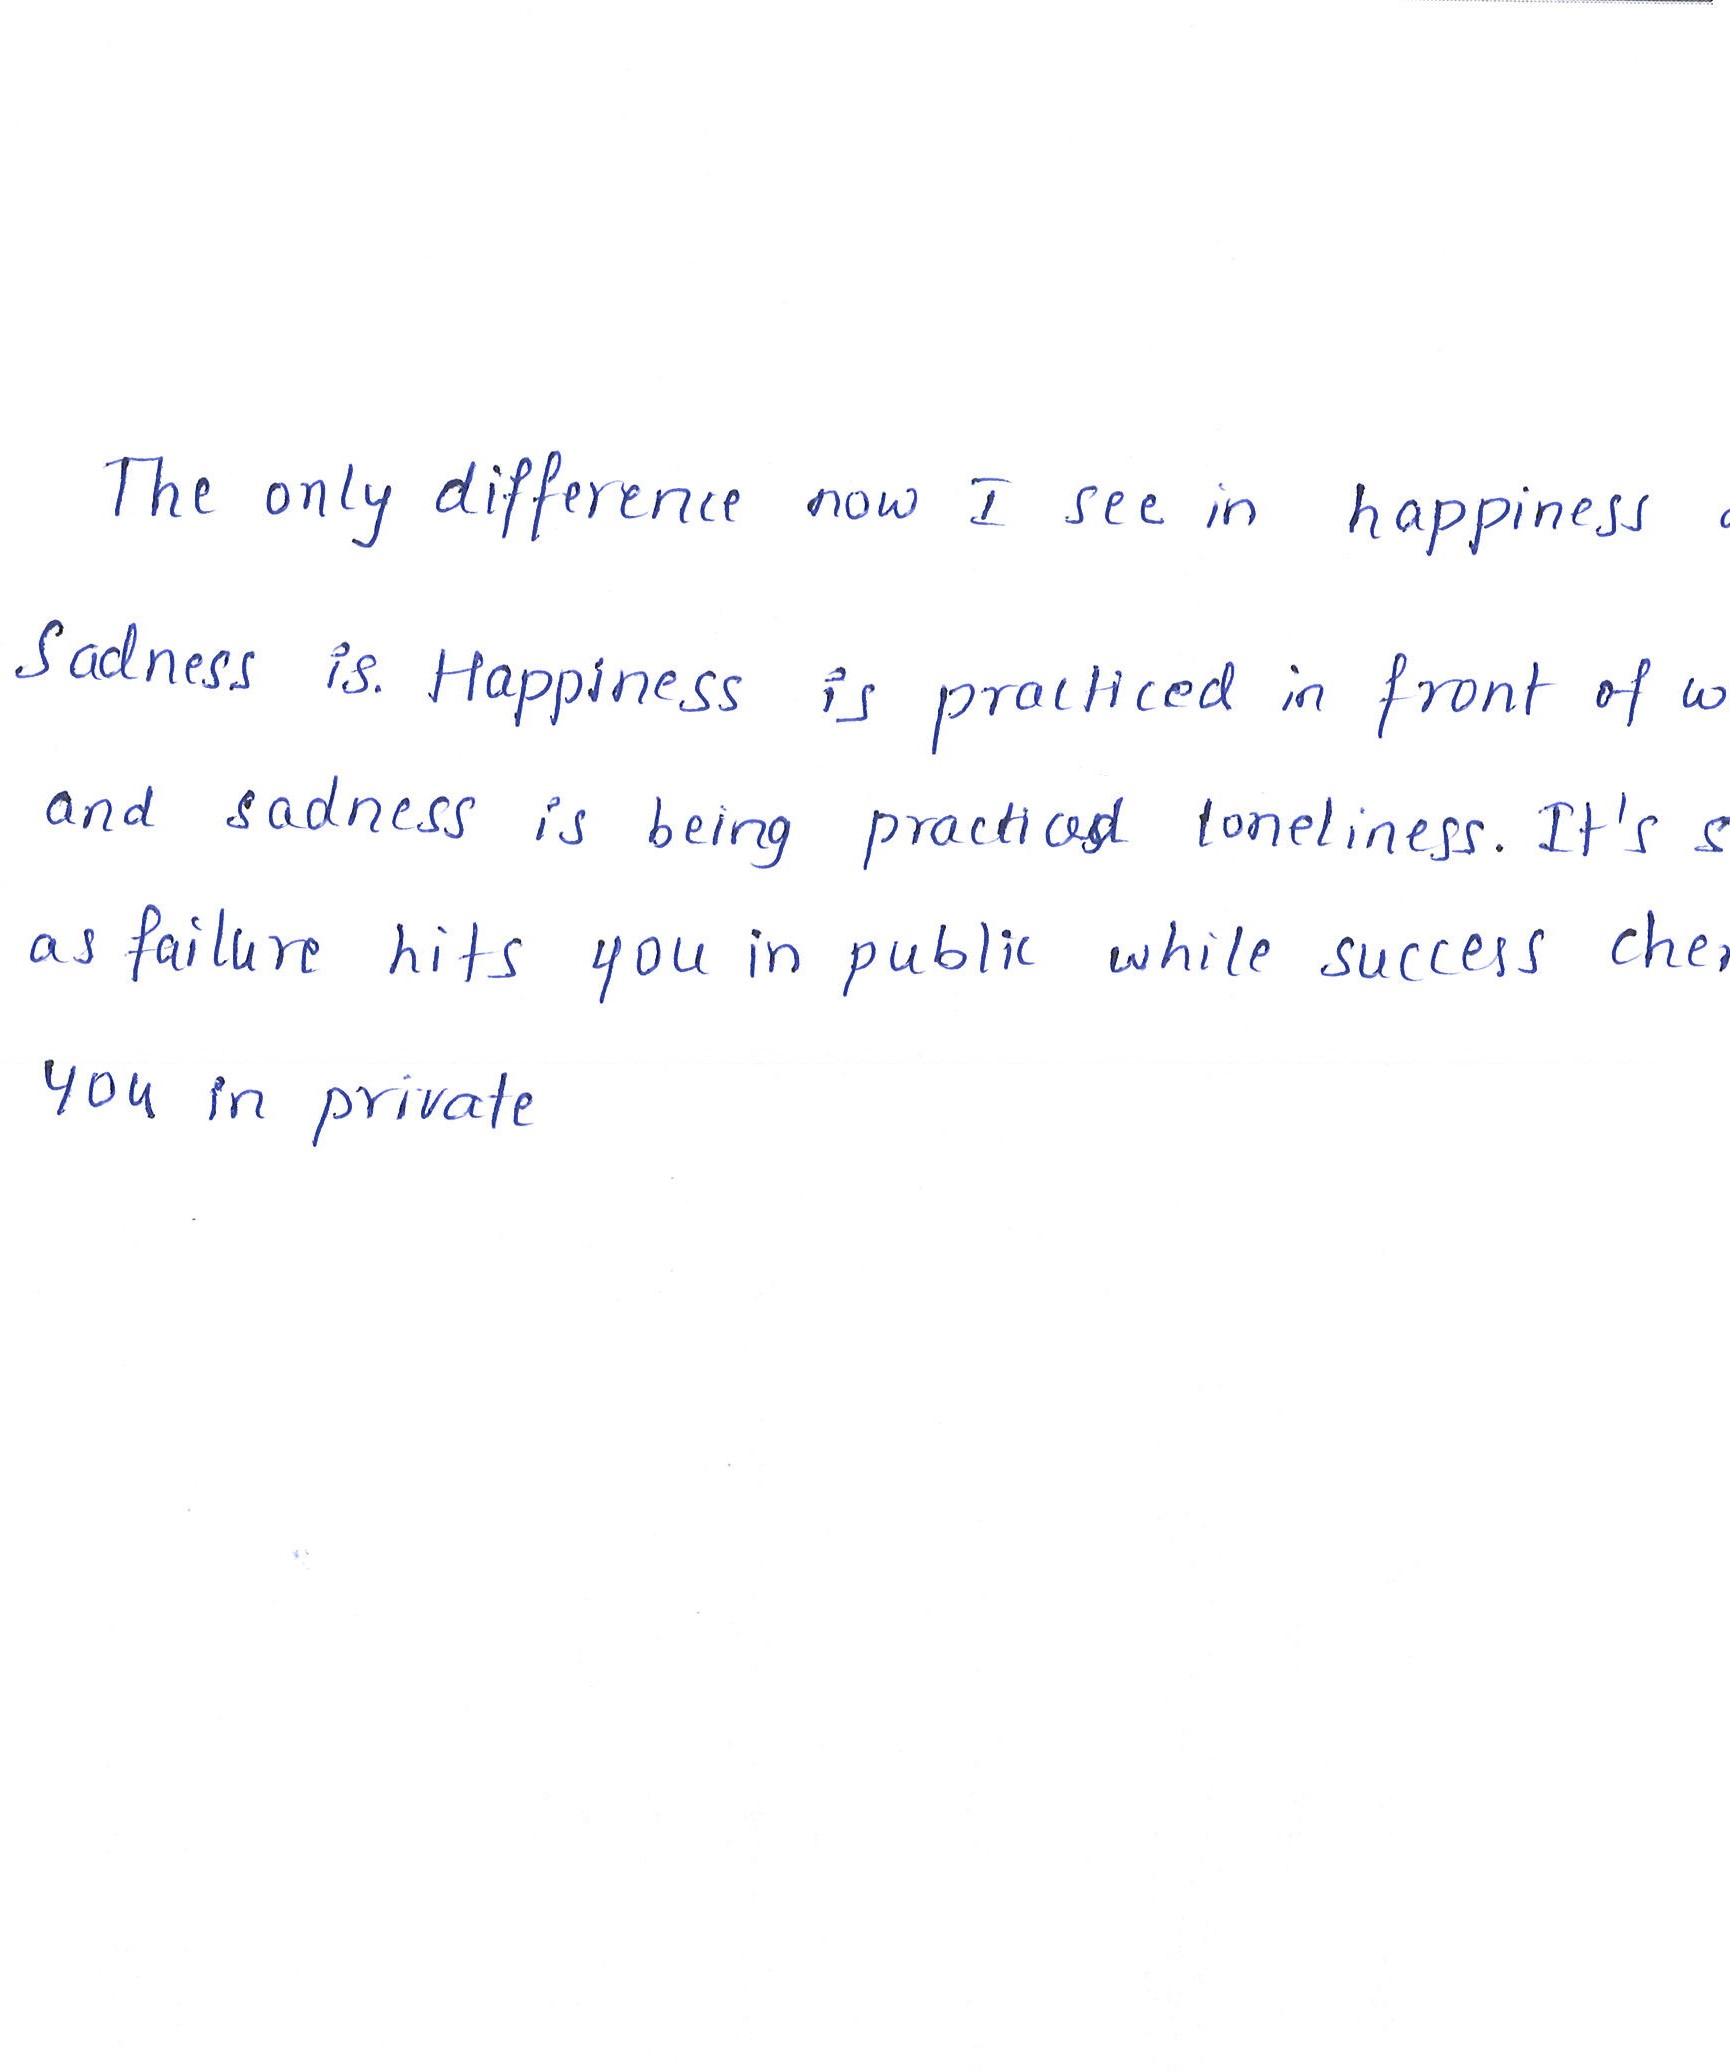 The only difference now I see in happiness
Sadness is. Happiness is practiced in front of
and sadness is being practiced loneliness. It's
as failure hits you in public while success
you in private